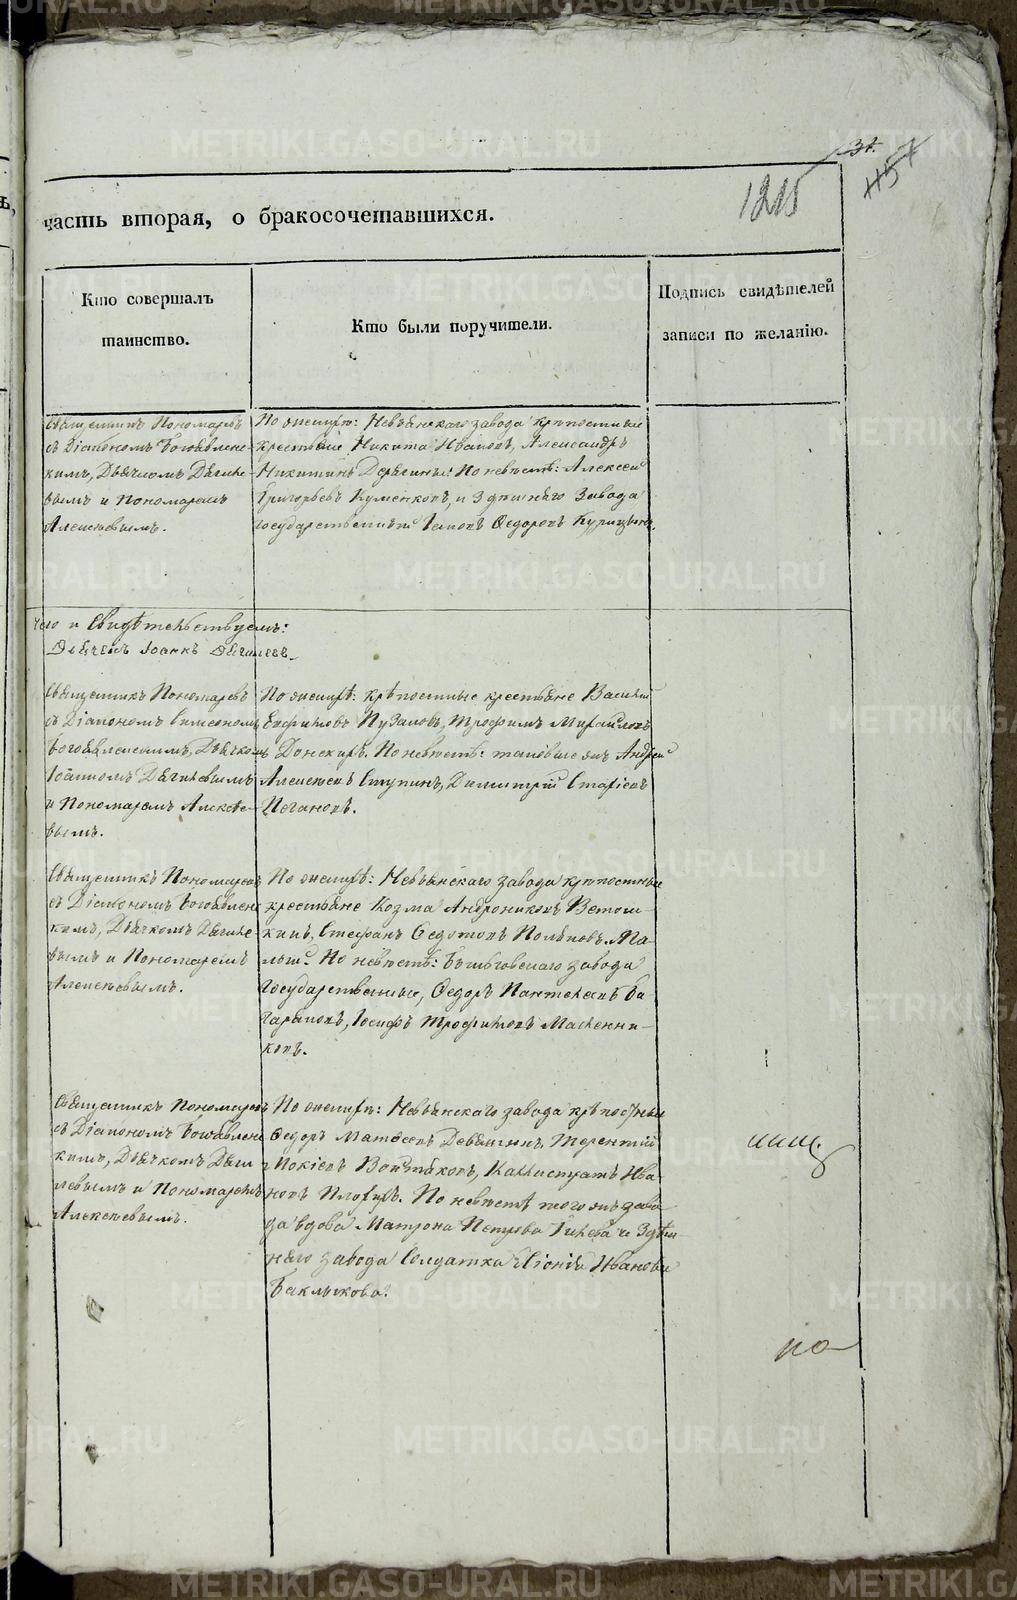 34.
1157
1215
часть вторая, о бракосочетавшихся.
Кто совершалъ
таинство.
Кто были поручители.
Подпись свидѣтелей
записи по желанію.
Священникъ Пономаревъ
съ Діакономъ Богоявленс-
кимъ, Дьячкомъ Дягиле-
вымъ и Пономаремъ
Алексѣевымъ.
По женихѣ: Невьянскаго завода крѣпостные
крестьяне Никита Ивановъ, Александръ
Никитинъ По невѣстѣ: Алексей
Григорьевъ и здѣшняго Завода
государственный Федоровъ Курицынъ.
Что и Свидѣтельствуемъ:
Дьячекъ Іоаннъ Дягилевъ
Священникъ Пономаревъ
съ Діакономъ Симеономъ
Богоявленскимъ, Дьячко-
Іоанномъ Дягилевымъ
и Пономаремъ Алексѣе-
вымъ.
По женихѣ: крѣпостные крестьяне Василій
Евфимовъ Пузановъ, Трофимъ Михайловъ
Донскихъ. По невѣстѣ: таковые жъ Андрей
Алексѣевъ Ступинъ, Димитрій
Погановъ.
Священникъ Пономаревъ
съ Діакономъ Богоявленс
кимъ, Дьячкомъ Дягиле-
вымъ и Пономаремъ
Алексѣевымъ.
По женихѣ: Невьянскаго завода крѣпостные
крестьяне Козма Андрониковъ Ветош-
кинъ, Стефанъ Федотовъ Поляковъ. Ма-
лый. По невѣстѣ: Быньговскаго завода
Государственные, Федоръ Пантелеевъ Га-
гариновъ, Іосифъ Трофимовъ Масленни-
ковъ.
Священникъ Пономаревъ
съ Діакономъ Богоявленс
кимъ, Дьячкомъ Дяги
левымъ и Пономаремъ
Алексѣевымъ.
По женихѣ: Невьянскаго завода крѣпостные
Федоръ Матвеевъ Терентій
Мокіевъ Войтяковъ, Каллистратъ Ива-
новъ Плохихъ. По невѣстѣ того жъ заво-
да вдова Матрона Петрова и Здѣш-
няго завода Солдатка Иванова
Баклыкова.